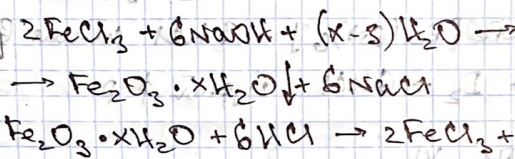 2FeCl₃ + 6NaOH + (x-3)H₂O →
→ Fe₂O₃ · xH₂O↓ + 6NaCl
Fe₂O₃ · xH₂O + 6HCl → 2FeCl₃ +